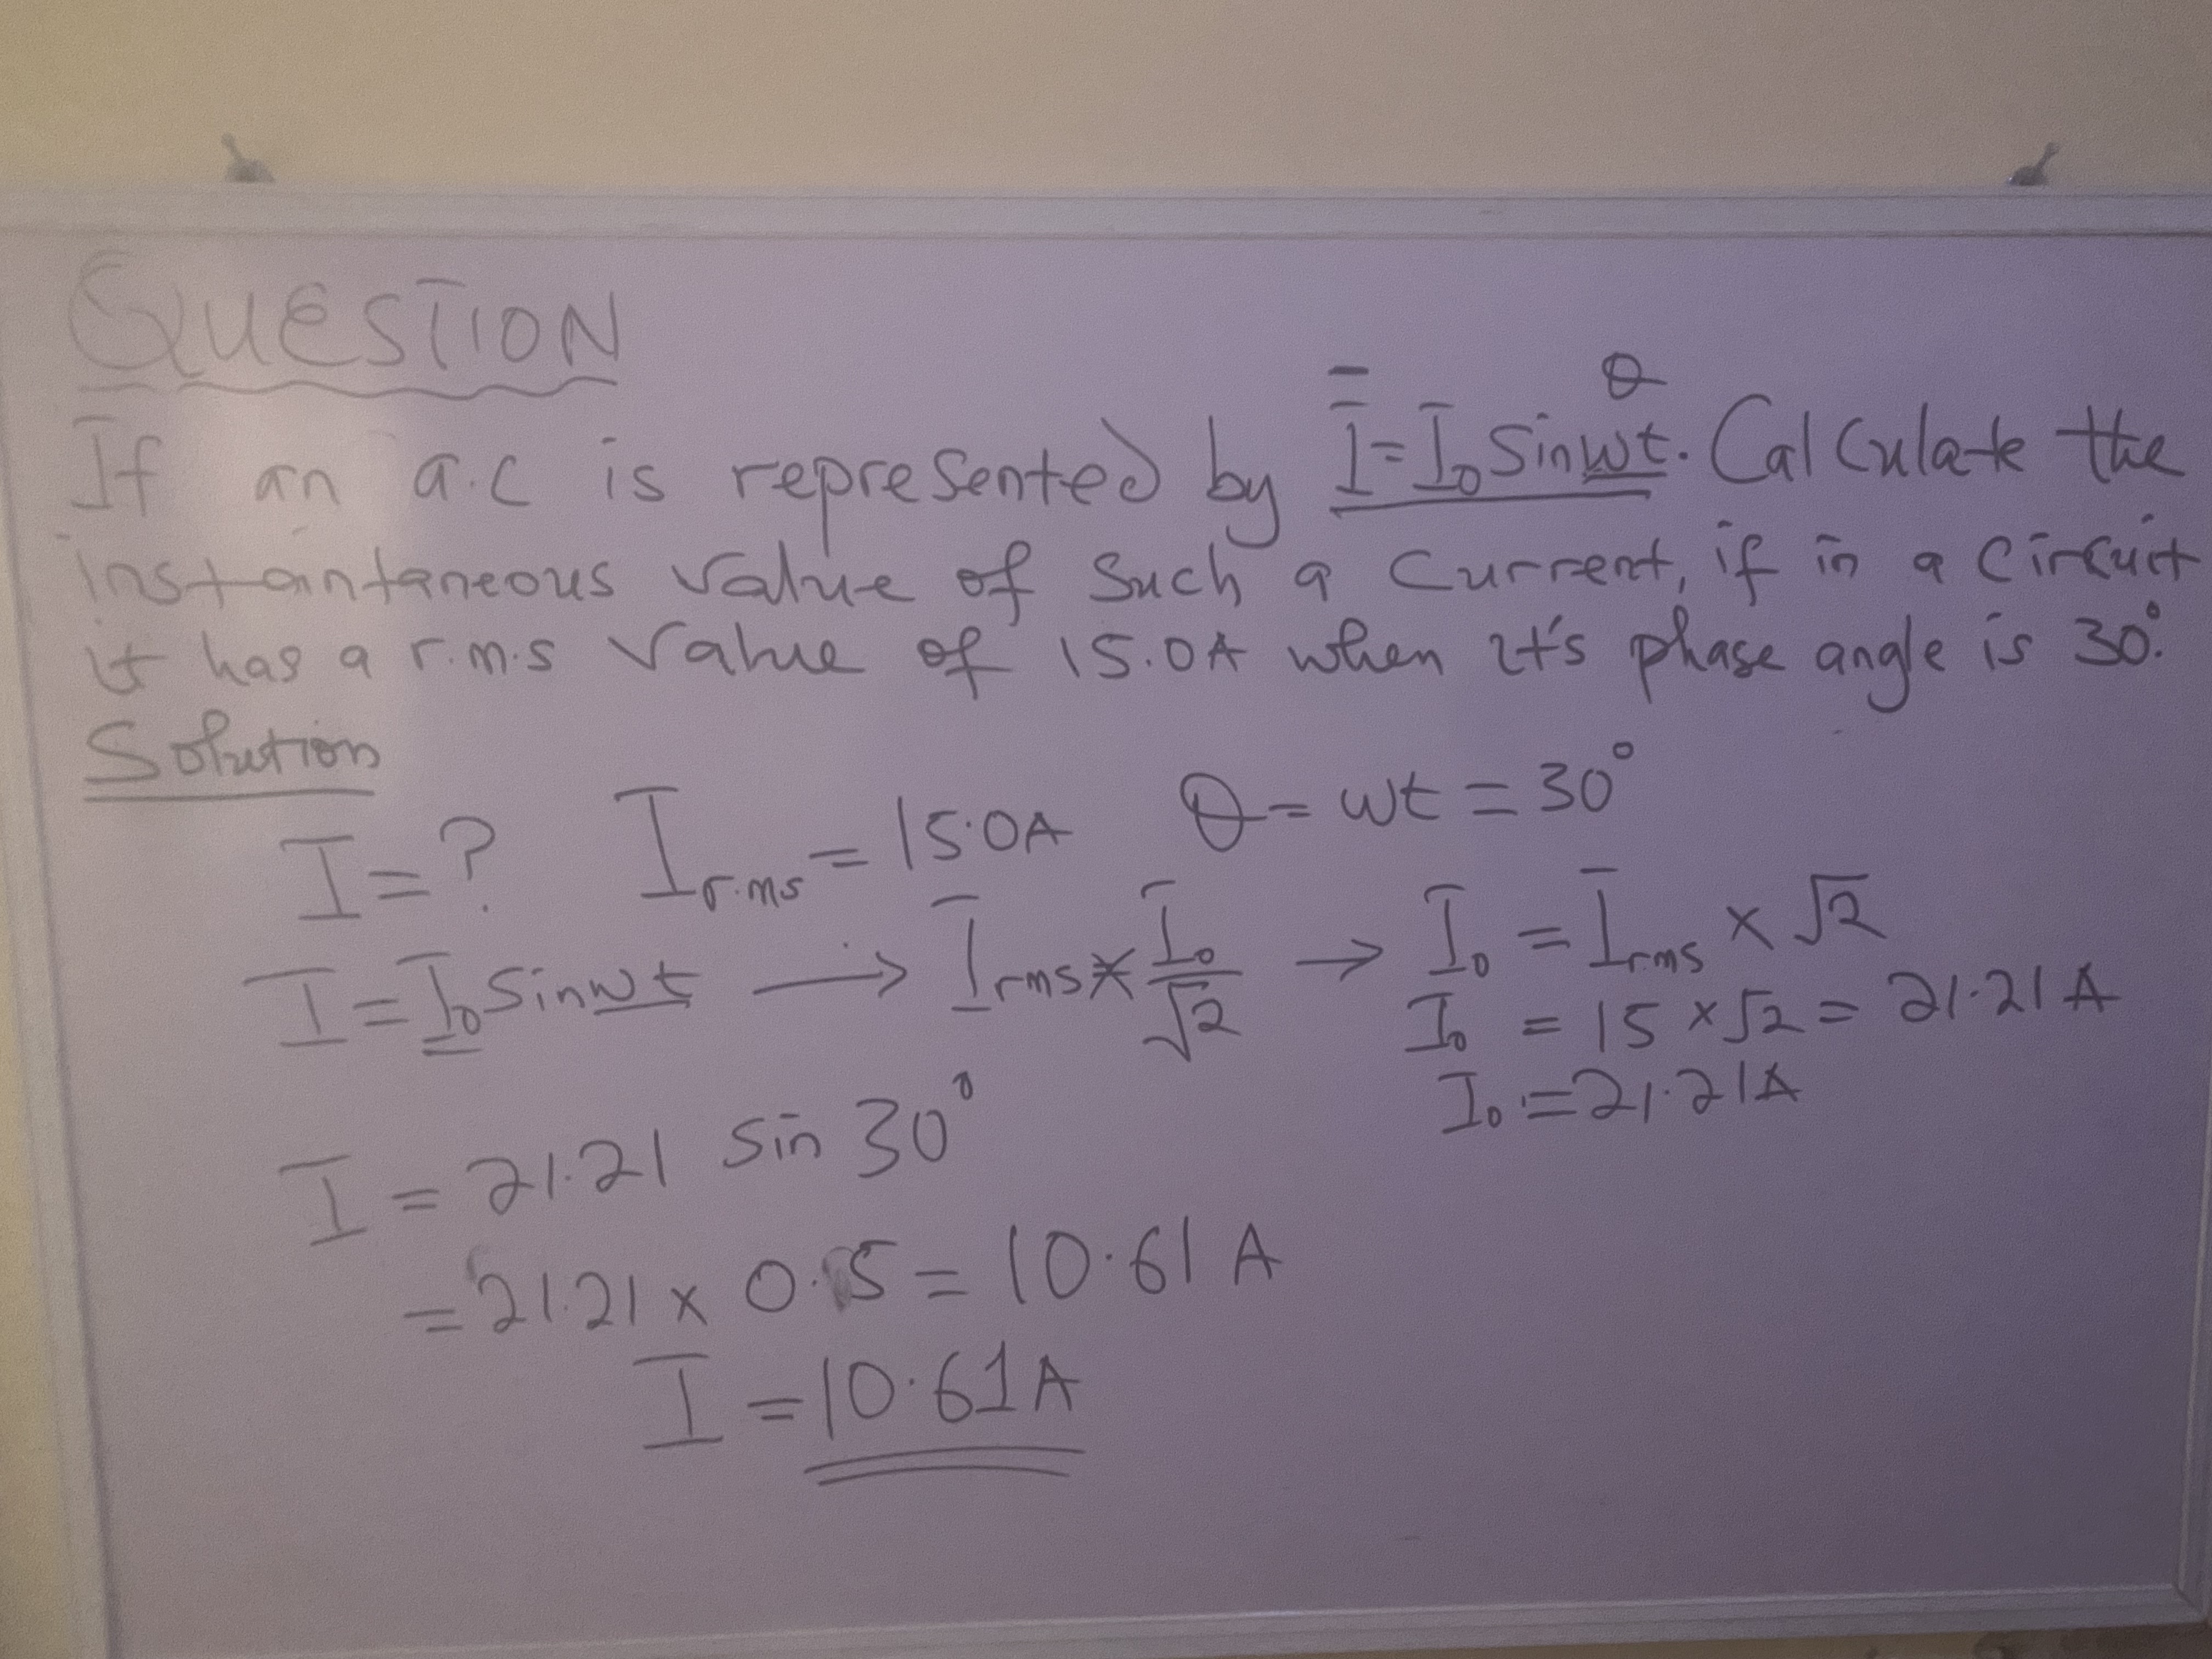 QUESTION
If an a.c is represented by I = I₀ Sinwt. Calculate the
θ
instantaneous value of such a current, if in a circuit
it has a r.m.s value of 15.0A when it's phase angle is 30°.
Solution
I = ? I r.ms = 15.0A θ = wt = 30°
I = I₀ Sinwt → Irms = I₀/√2 → I₀ = Irms × √2
I₀ = 15 × √2 = 21.21 A
I₀ = 21.21A
I = 21.21 sin 30°
= 21.21 × 0.5 = 10.61 A
I = 10.61A